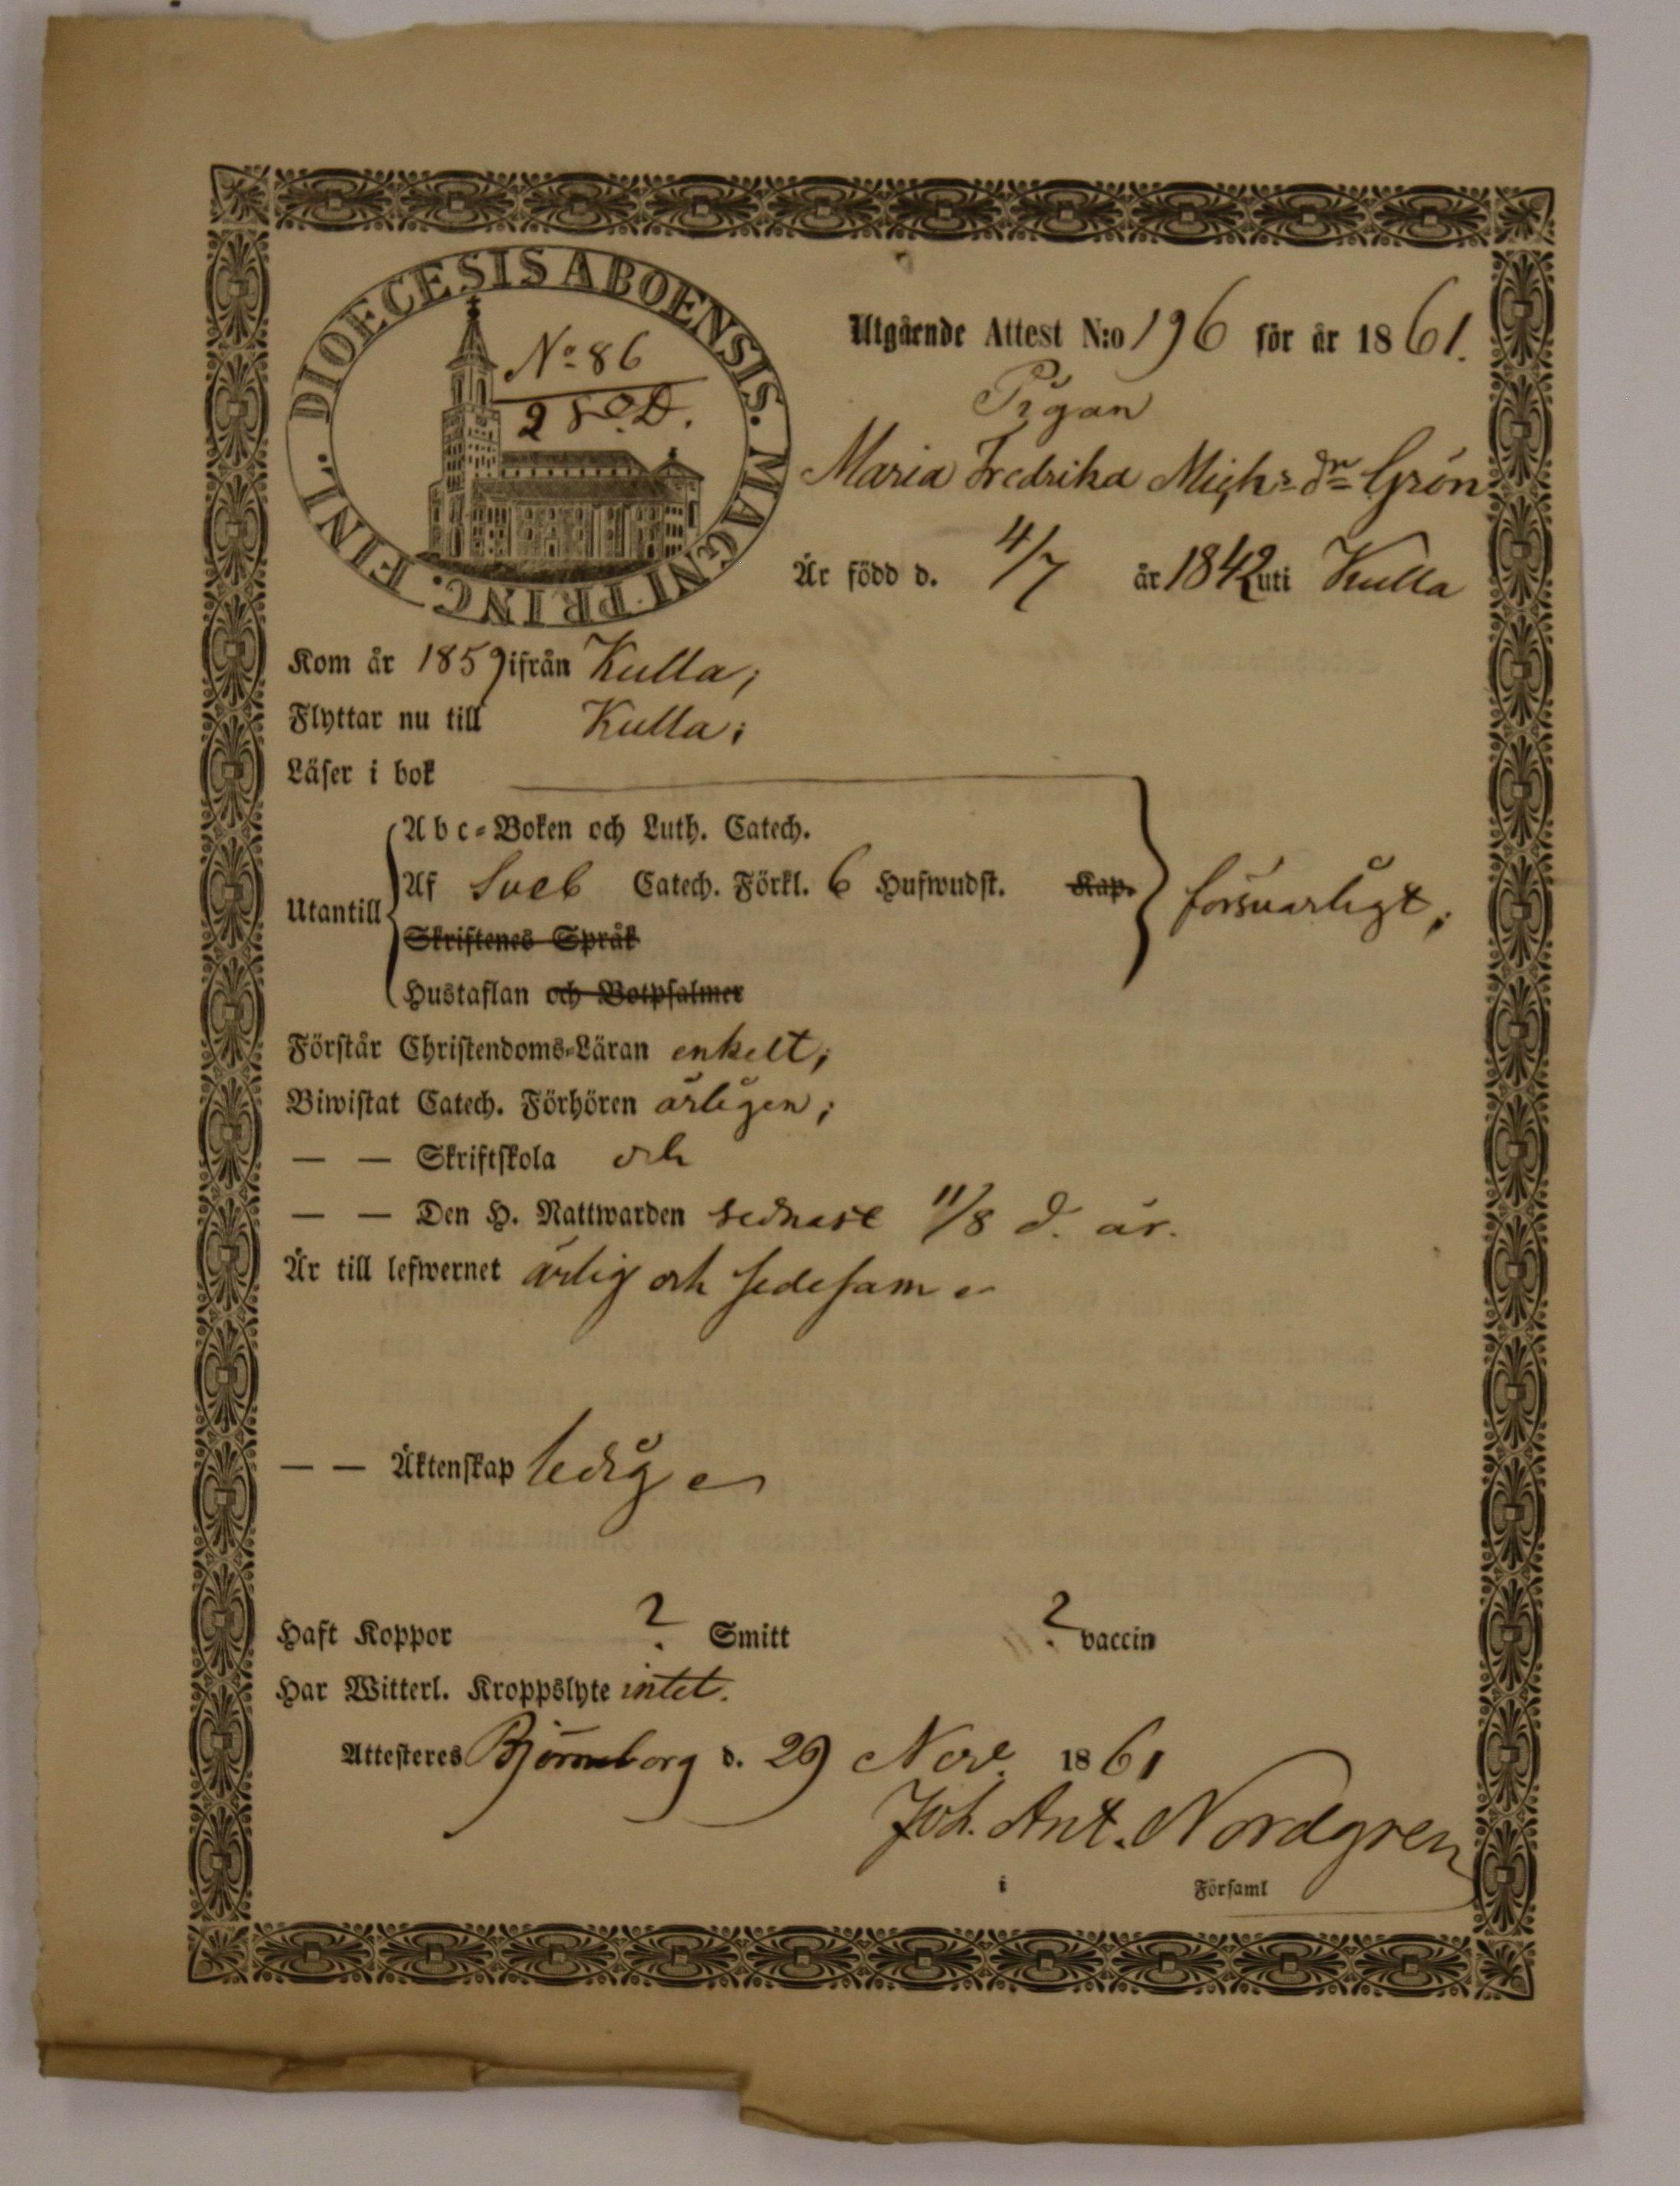 DIOECESIS ABOENSIS. MAGNI PRINC. FINL.
No 86
Utgående Attest N:o 196 för år 1861.
Pigan
Maria Fredrika Mich:s dr Grön
Är född d. 4/7 år 1842 uti Kulla
Kom år 1859 ifrån Kulla;
Flyttar nu till Kulla;
Läser i bok
Abc-Boken och Luth. Catech.
Utantill
Af Sveb Catech. Förkl. 6 Hufwudst. Kap.
försvarligt;
Skriftenes Språk
Hustaflan och Botpsalmer
Förstår Christendoms-Läran enkelt;
Biwistat Catech. Förhören årligen;
— — Skriftskola och
— — Den H. Nattwarden sednast 11/8 d. år.
Är till lefwernet ärlig och sedesam
— — Äktenskap ledig
Haft Koppor ? Smitt ? vaccin
Har Witterl. Kroppslyte intet.
Attesteres Björneborg d. 29 Nov. 1861
Joh. Ant. Nordgren
i Församl